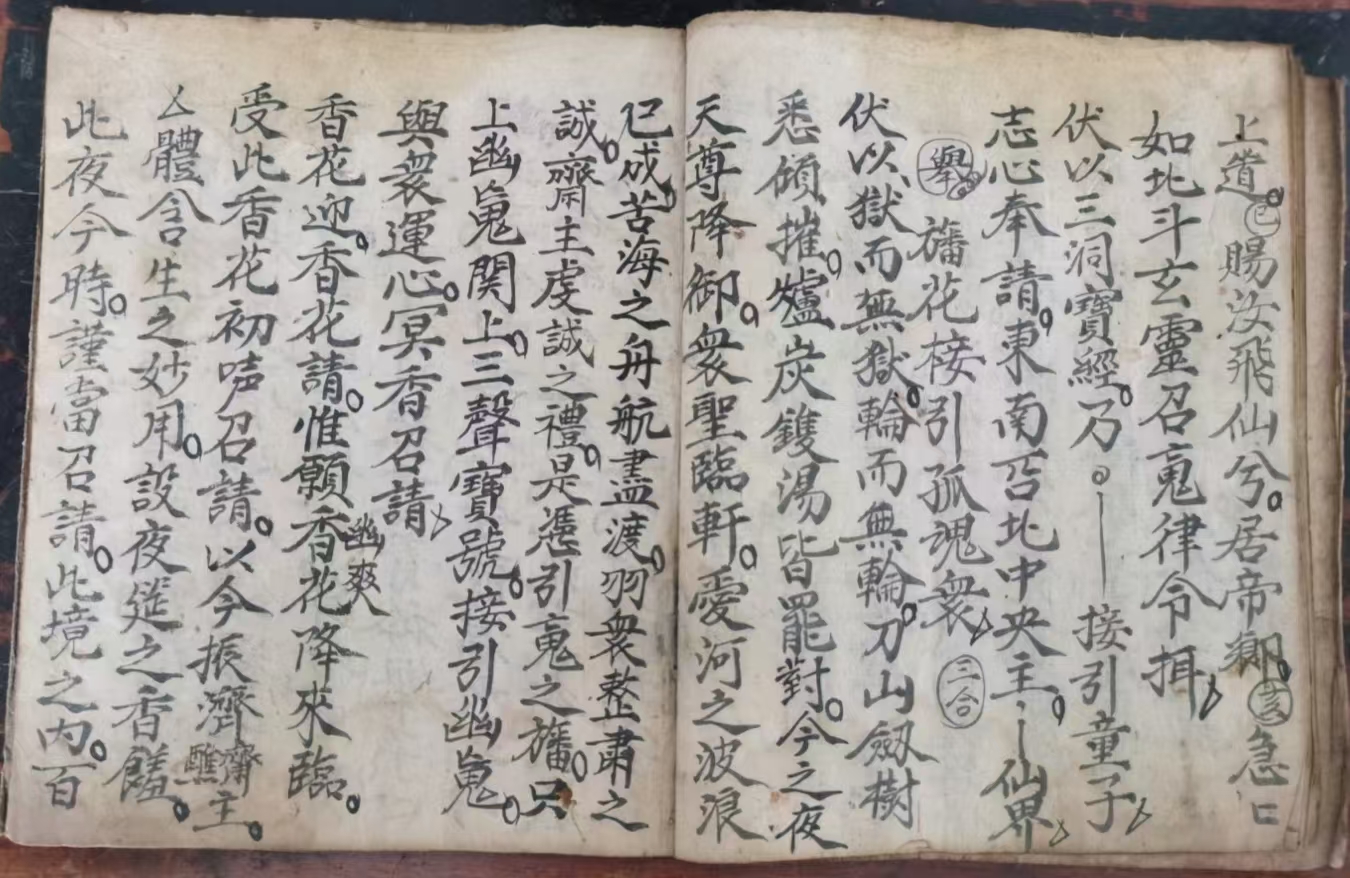 上道㊂賜汝飛仙兮居帝鄉㊂急口
如北斗玄靈召䰟律令揖
伏以三洞寶經乃 接引童子
志心奉請東南西北中央主 仙界
舉 旛花接引孤魂衆 三合
伏以獄而無獄輪而無輪刀山劔樹
悉傾摧爐炭鑊湯皆罷對今之夜
天尊降御衆聖臨軒愛河之波浪
已成苦海之舟航盡渡羽衆整肅之
誠齋主虔誠之禮是憑引䰟之旛只
上幽䰟関上三聲寶號接引幽䰟
與衆運心冥香召請
香花迎香花請惟願幽爽香花降來臨
受此香花初咵召請以今振濟齋醮主
亼體含生之妙用設夜筵之香饈
此夜今時謹當召請此境之內百